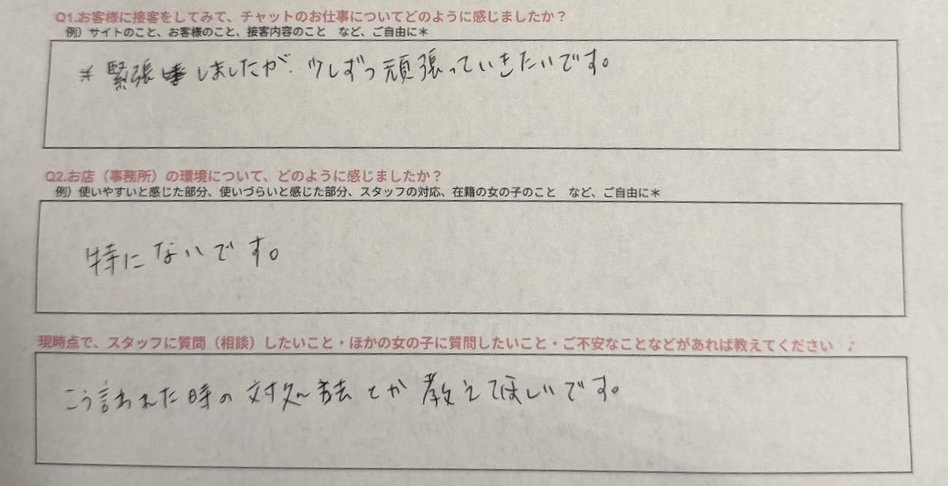 Q1.お客様に接客をしてみて、チャットのお仕事についてどのように感じましたか？
例）サイトのこと、お客様のこと、接客内容のこと　など、ご自由に＊
緊張しましたが、少しずつ頑張っていきたいです。
Q2.お店（事務所）の環境について、どのように感じましたか？
例）使いやすいと感じた部分、使いづらいと感じた部分、スタッフの対応、在籍の女の子のこと　など、ご自由に＊
特にないです。
現時点で、スタッフに質問（相談）したいこと・ほかの女の子に質問したいこと・ご不安なことなどがあれば教えてください　♪
こう言われた時の対処方法とか教えてほしいです。